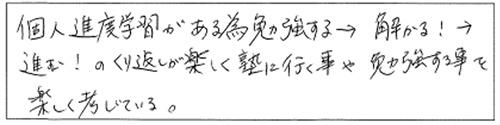 個人進度学習がある為勉強する→ 解かる！→
進む！のくり返しが楽しく塾に行く事や 勉強する事を
楽しく考じている。